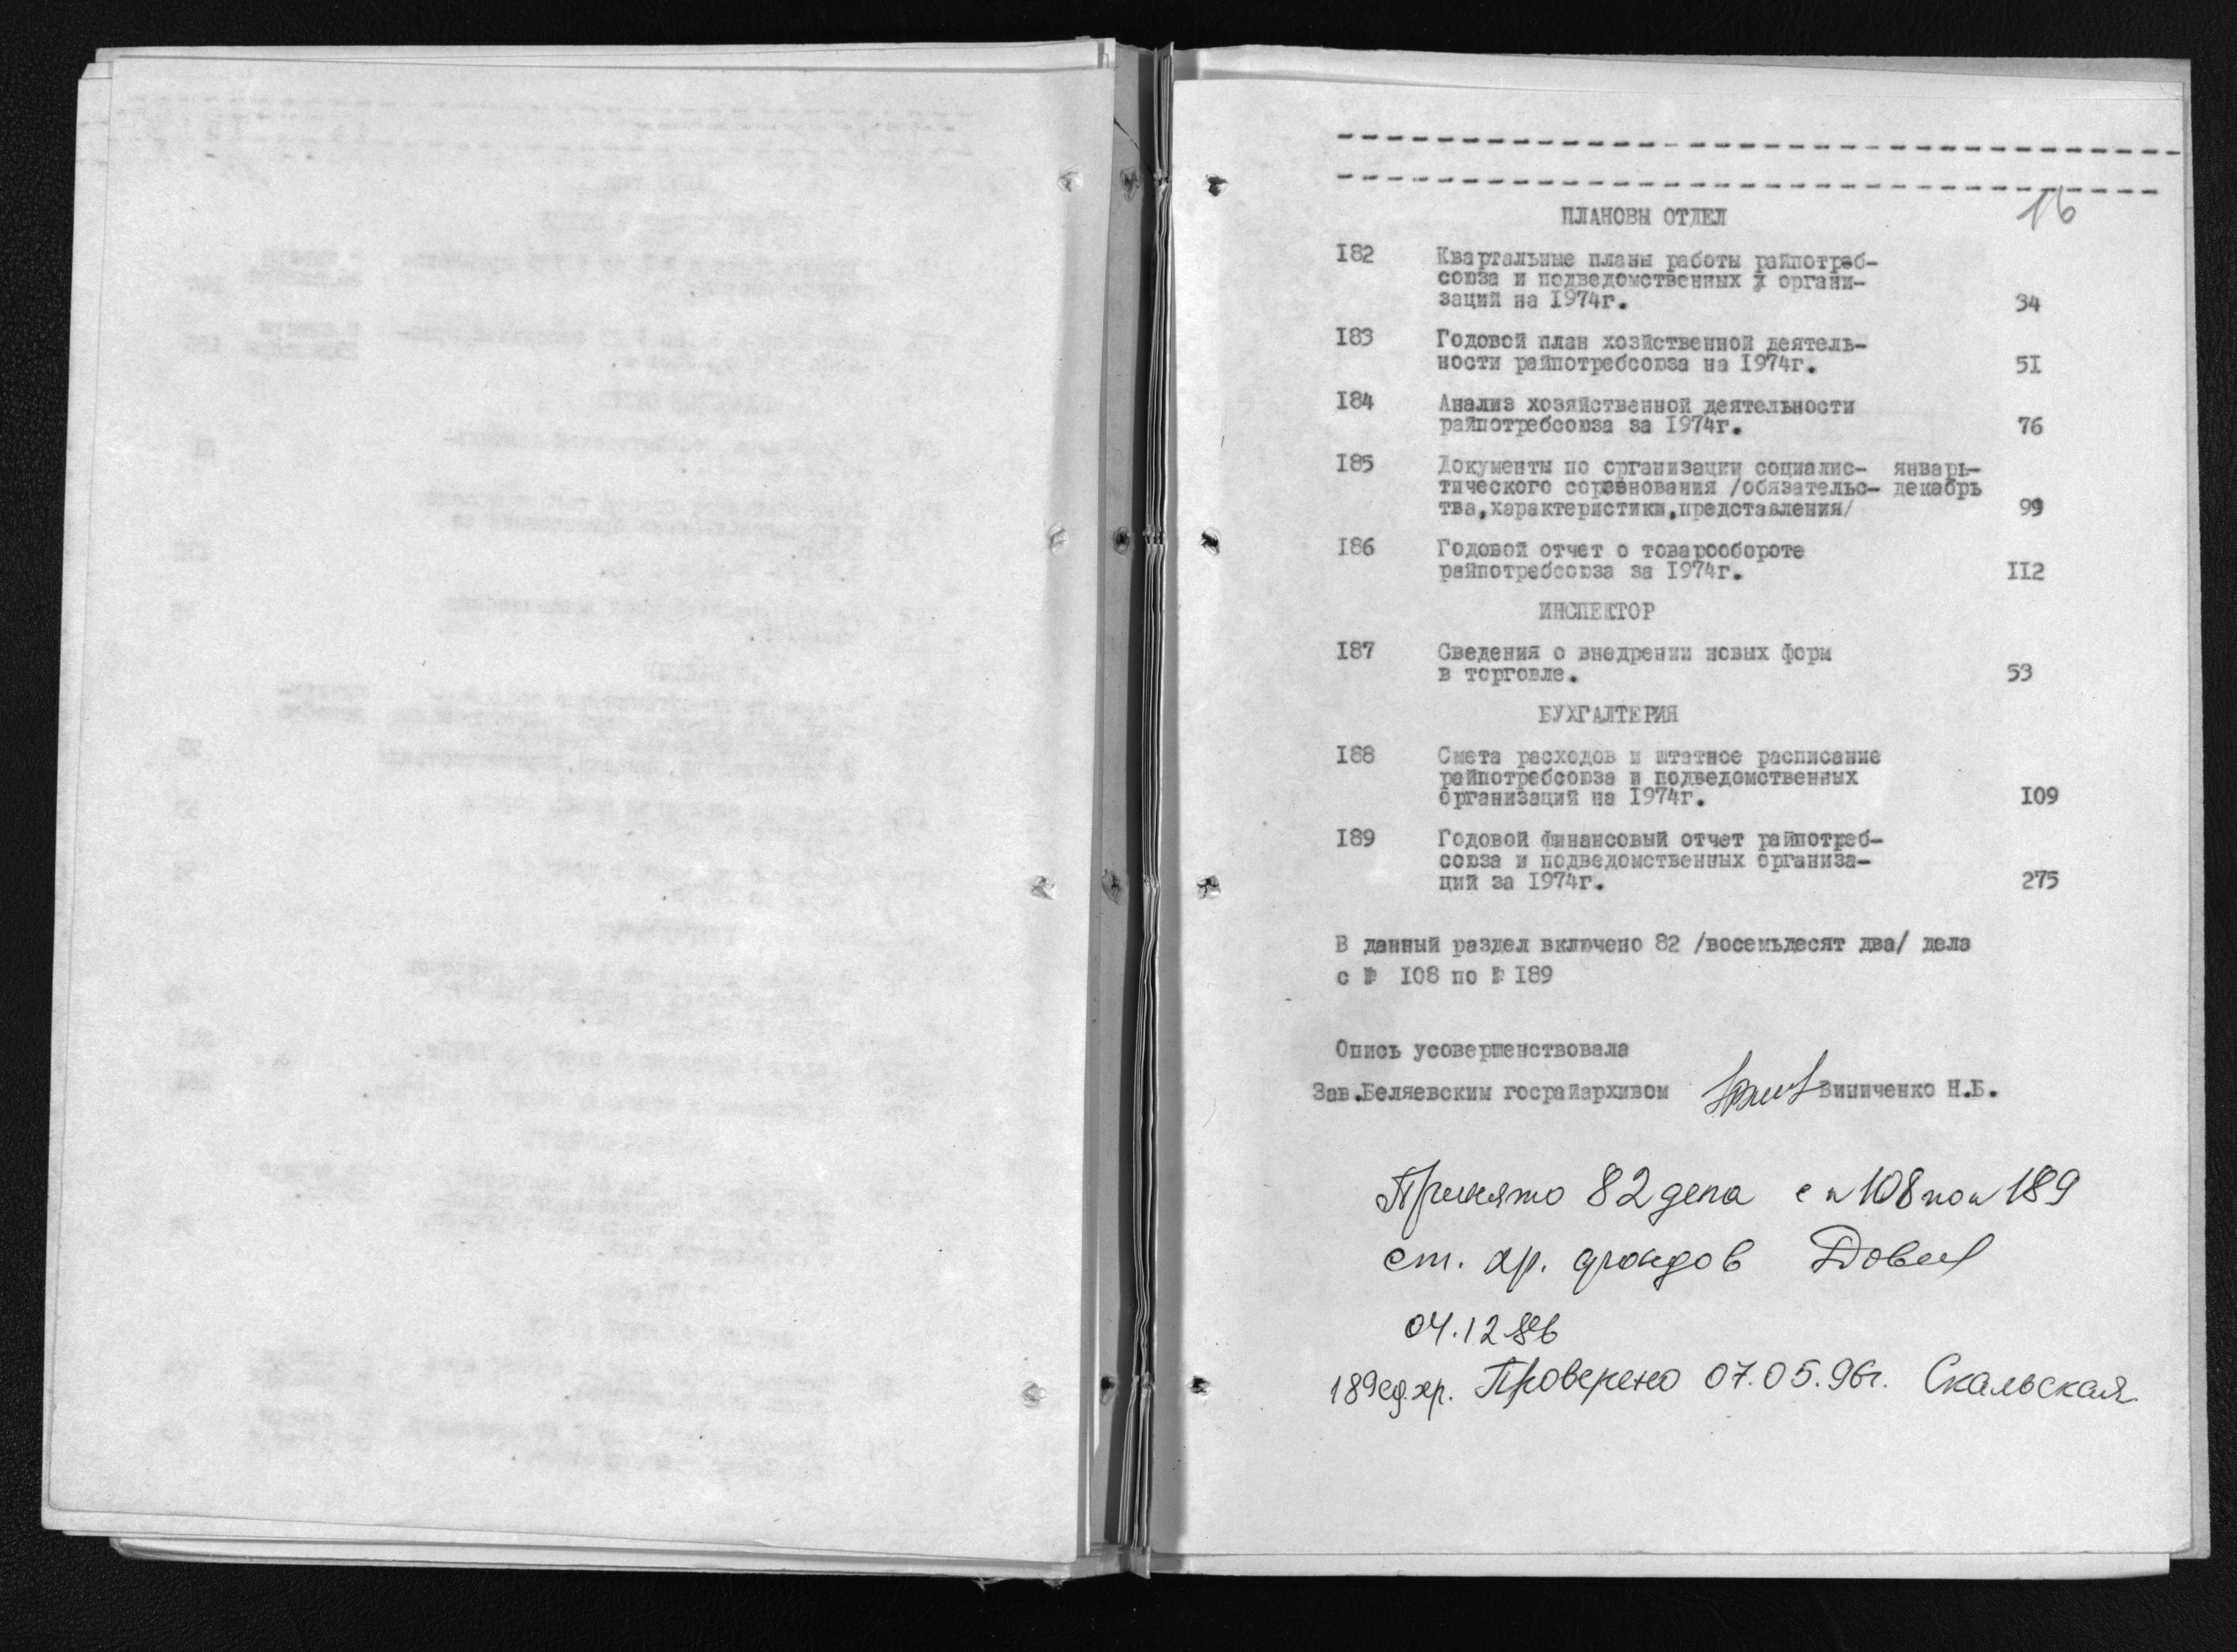 16
ПЛАНОВЫ ОТДЕЛ
I82 Квартальные планы работы райпотреб-
союза и подведомственных органи-
заций на I974г. 34
I83 Годовой план хозйственной деятель-
ности райпотребсоюза на I974г. 5I
I84 Анализ хозяйственной деятельности
райпотребсоюза за I974г. 76
I85 Документы по организации социалис- январь-
тического соревнования /обязательс- декабрь
тва,характеристики,представления/ 99
I86 Годовой отчет о товарообороте
райпотребсоюза за I974г. II2
ИНСПЕКТОР
I87 Сведения о внедрении новых форм
в торговле. 53
БУХГАЛТЕРИЯ
I88 Смета расходов и штатное расписание
райпотребсоюза и подведомственных
организаций на I974г. I09
I89 Годовой финансовый отчет райпотреб-
союза и подведомственных организа-
ций за I974г. 275
В данный раздел включено 82 /восемьдесят два/ дела
с № I08 по № I89
Опись усовершенствовала
Зав.Беляевским госрайархивом Виниченко Н.Б.
Принято 82 дела с № 108 по № 189
ст. хр. фондов
04.12.86
189 ед.хр. Проверено 07.05.96г. Скальская